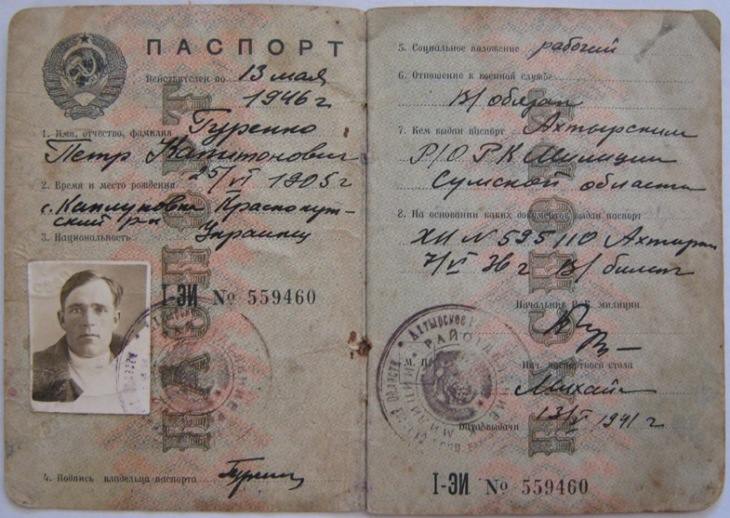 ПАСПОРТ
Действителен по 13 мая
1946 г
1. Имя, отчество, фамилия Гуренко
Петр Капитонович
2. Время и место рождения 25/VI 1905 г
с. Каплуновка Краснокут-
ский р-н
3. Национальность Украинец
I-ЭИ № 559460
4. Подпись владельца паспорта
5. Социальное положение рабочий
6. Отношение к военной службе
В/обязан
7. Кем выдан паспорт Ахтырским
Р/О Р К Милиции
Сумской области
8. На основании каких документов выдан паспорт
XII N 595110
7/VI 36 г В/билет
Начальник Р. К. милиции
М. П.
Нач. паспортного стола
Дата выдачи 13/V 1941 г
I-ЭИ № 559460